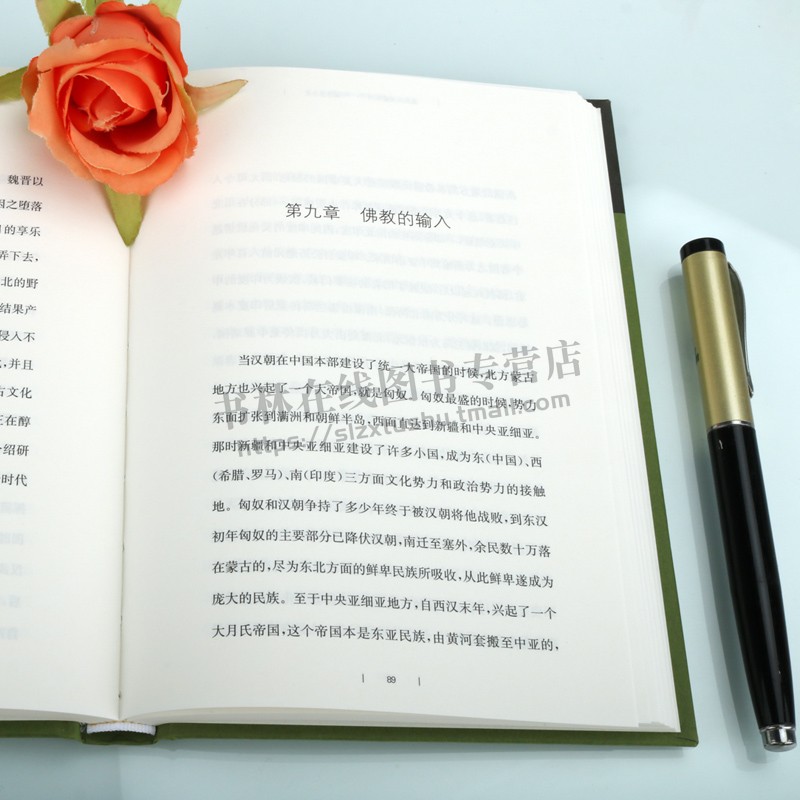 魏晋以
因之堕落
的享乐
弄下去，
北的野
结果产
侵入不
，并且
古文化
正在醇
绍研
时代
第九章 佛教的输入
当汉朝在中国本部建设了统一大帝国的时候，北方蒙古
地方也兴起了一个大帝国，就是匈奴。匈奴最盛的时候，势力
东面扩张到满洲和朝鲜半岛，西面直达到新疆和中央亚细亚。
那时新疆和中央亚细亚建设了许多小国，成为东（中国）、西
（希腊、罗马）、南（印度）三方面文化势力和政治势力的接触
地。匈奴和汉朝争持了多少年终于被汉朝将他战败，到东汉
初年匈奴的主要部分已降伏汉朝，南迁至塞外，余民数十万落
在蒙古的，尽为东北方面的鲜卑民族所吸收，从此鲜卑遂成为
庞大的民族。至于中央亚细亚地方，自西汉末年，兴起了一个
大月氏帝国，这个帝国本是东亚民族，由黄河套搬至中亚的，
89
书林在线图书专营店
https://slzxtushu.tmall.com/